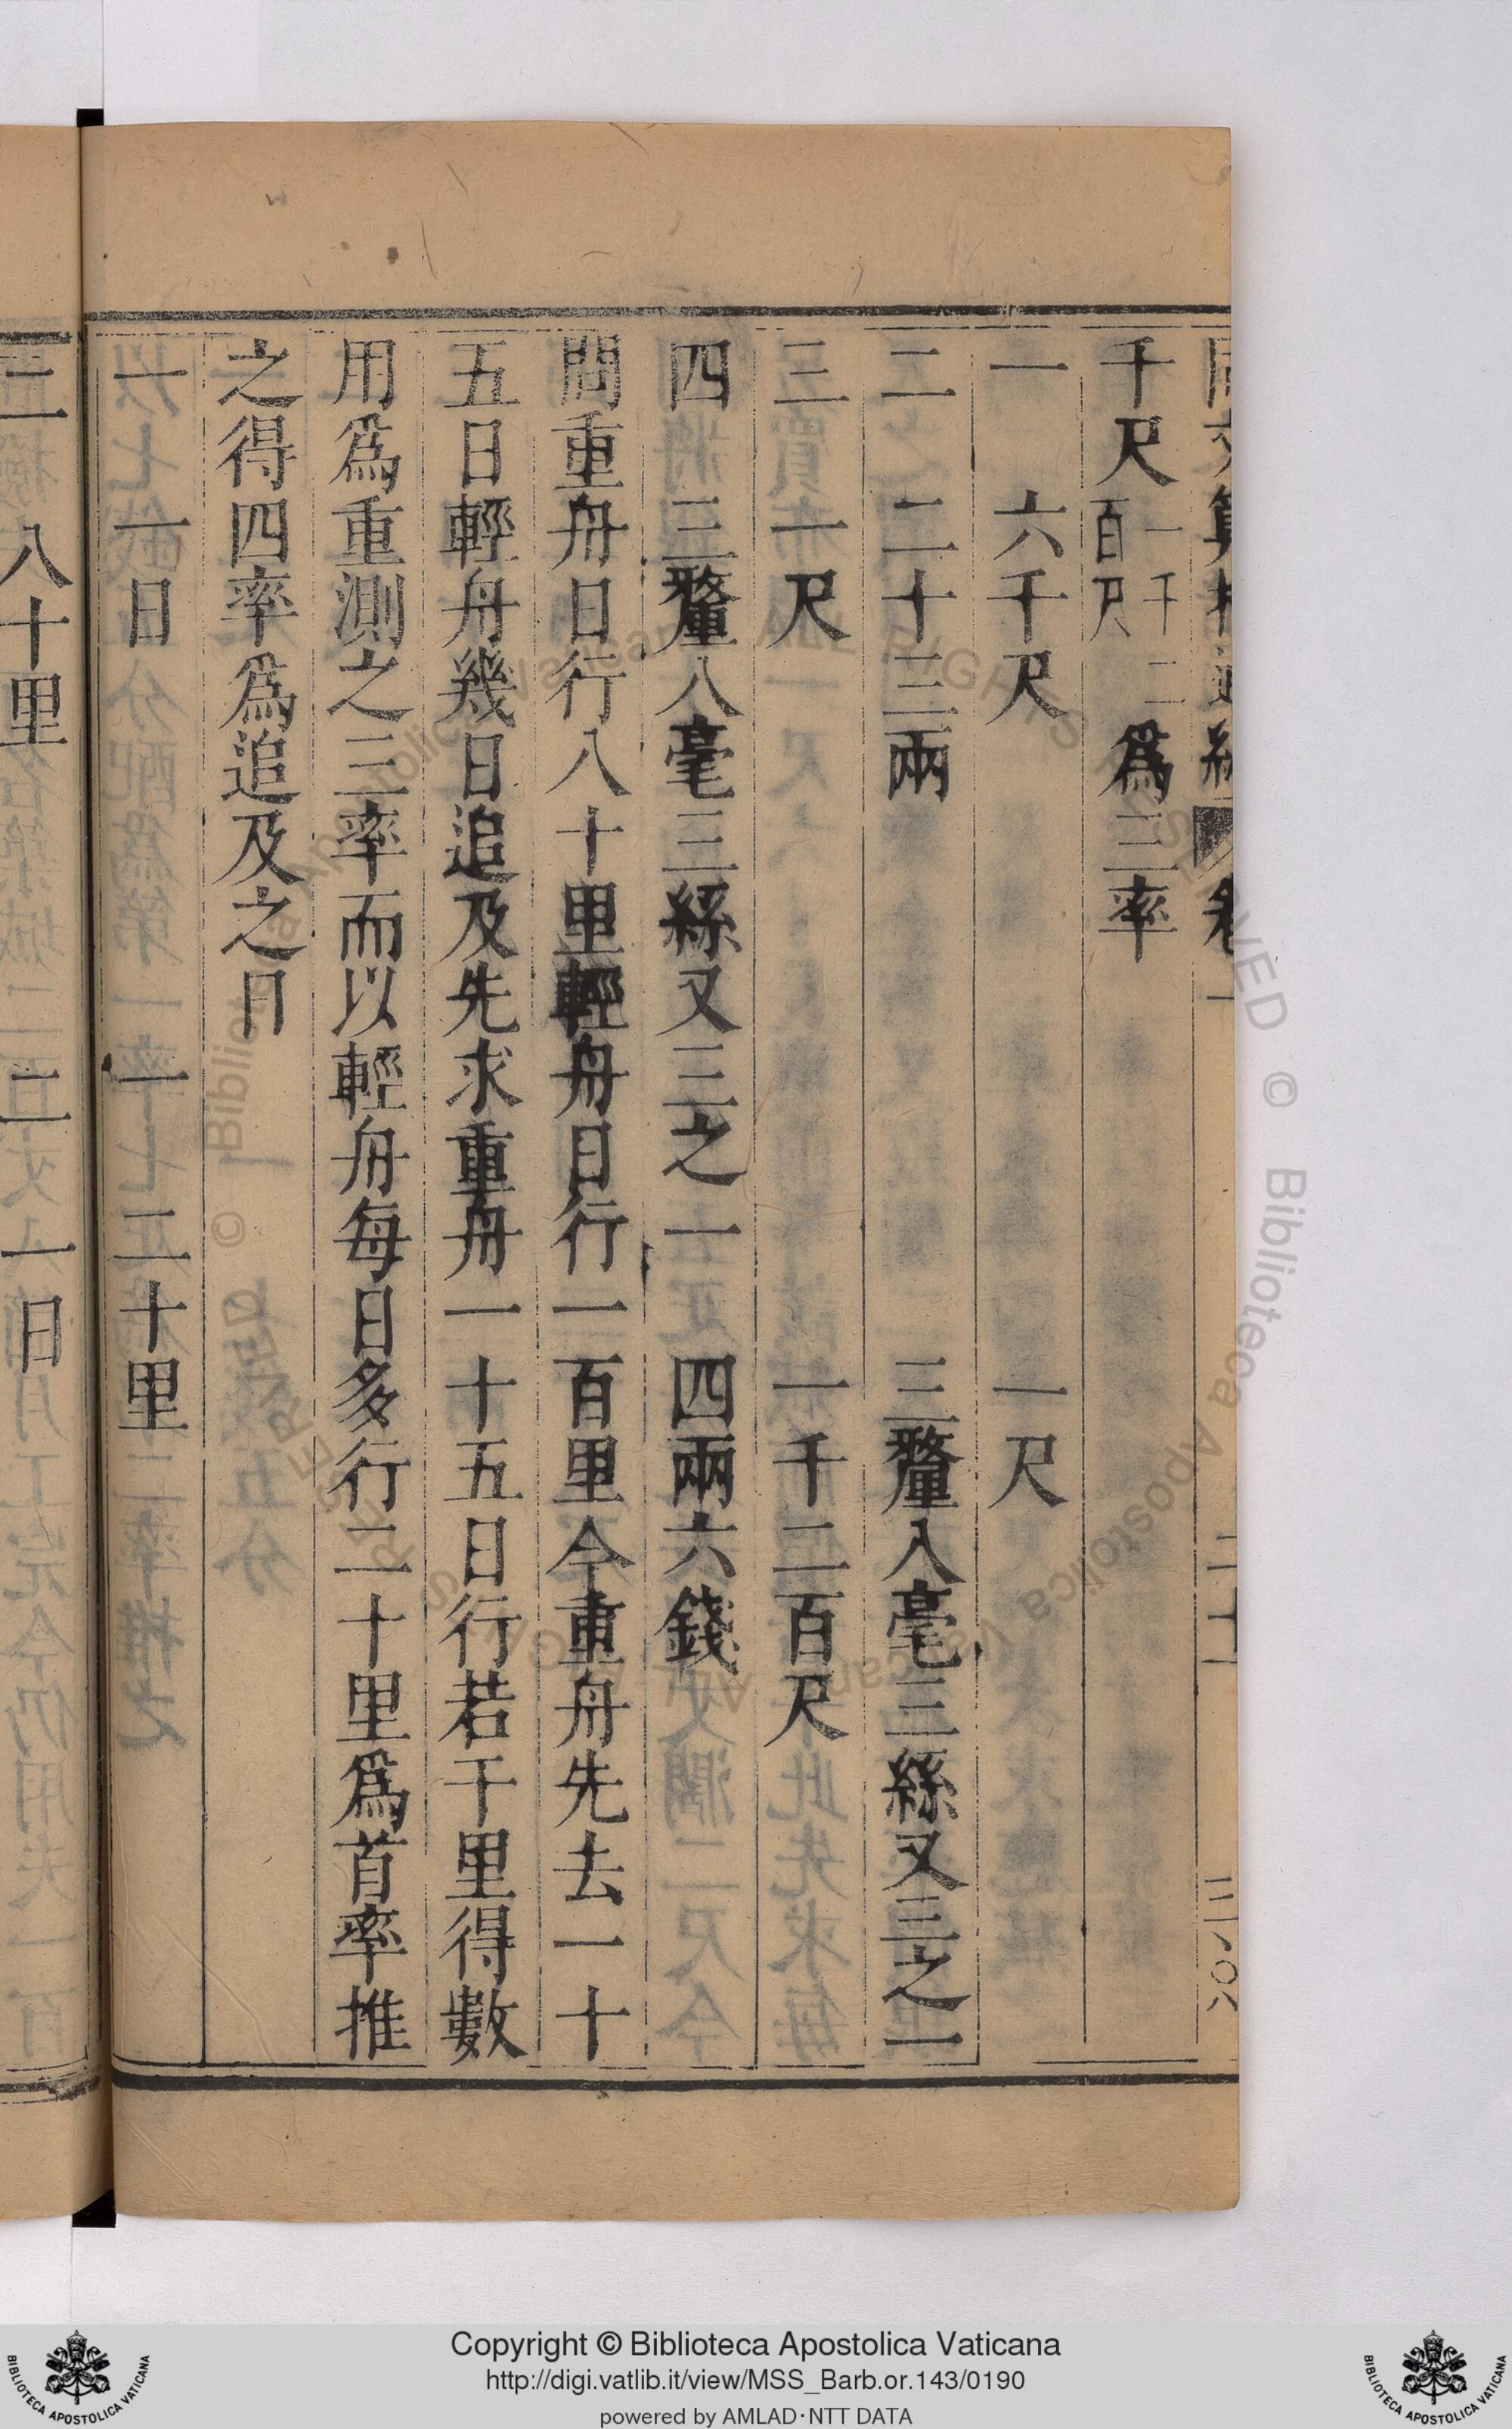 千尺一千二百尺爲三率
一　六千尺　一尺
二　二十三兩　三釐八毫三絲又三之一
三　一尺　一千二百尺
四　三釐八毫三絲又三之一　四兩六錢
問重舟日行八十里輕舟日行一百里今重舟先去一十
五日輕舟幾日追及先求重舟一十五日行若干里得數
用爲重測之三率而以輕舟每日多行二十里爲首率推
之得四率爲追及之日
一　一日　一　二十里
二　八十里　二　一日
Copyright © Biblioteca Apostolica Vaticana
http://digi.vatlib.it/view/MSS_Barb.or.143/0190
powered by AMLAD·NTT DATA
BIBLIOTECA APOSTOLICA VATICANA
BIBLIOTECA APOSTOLICA VATICANA